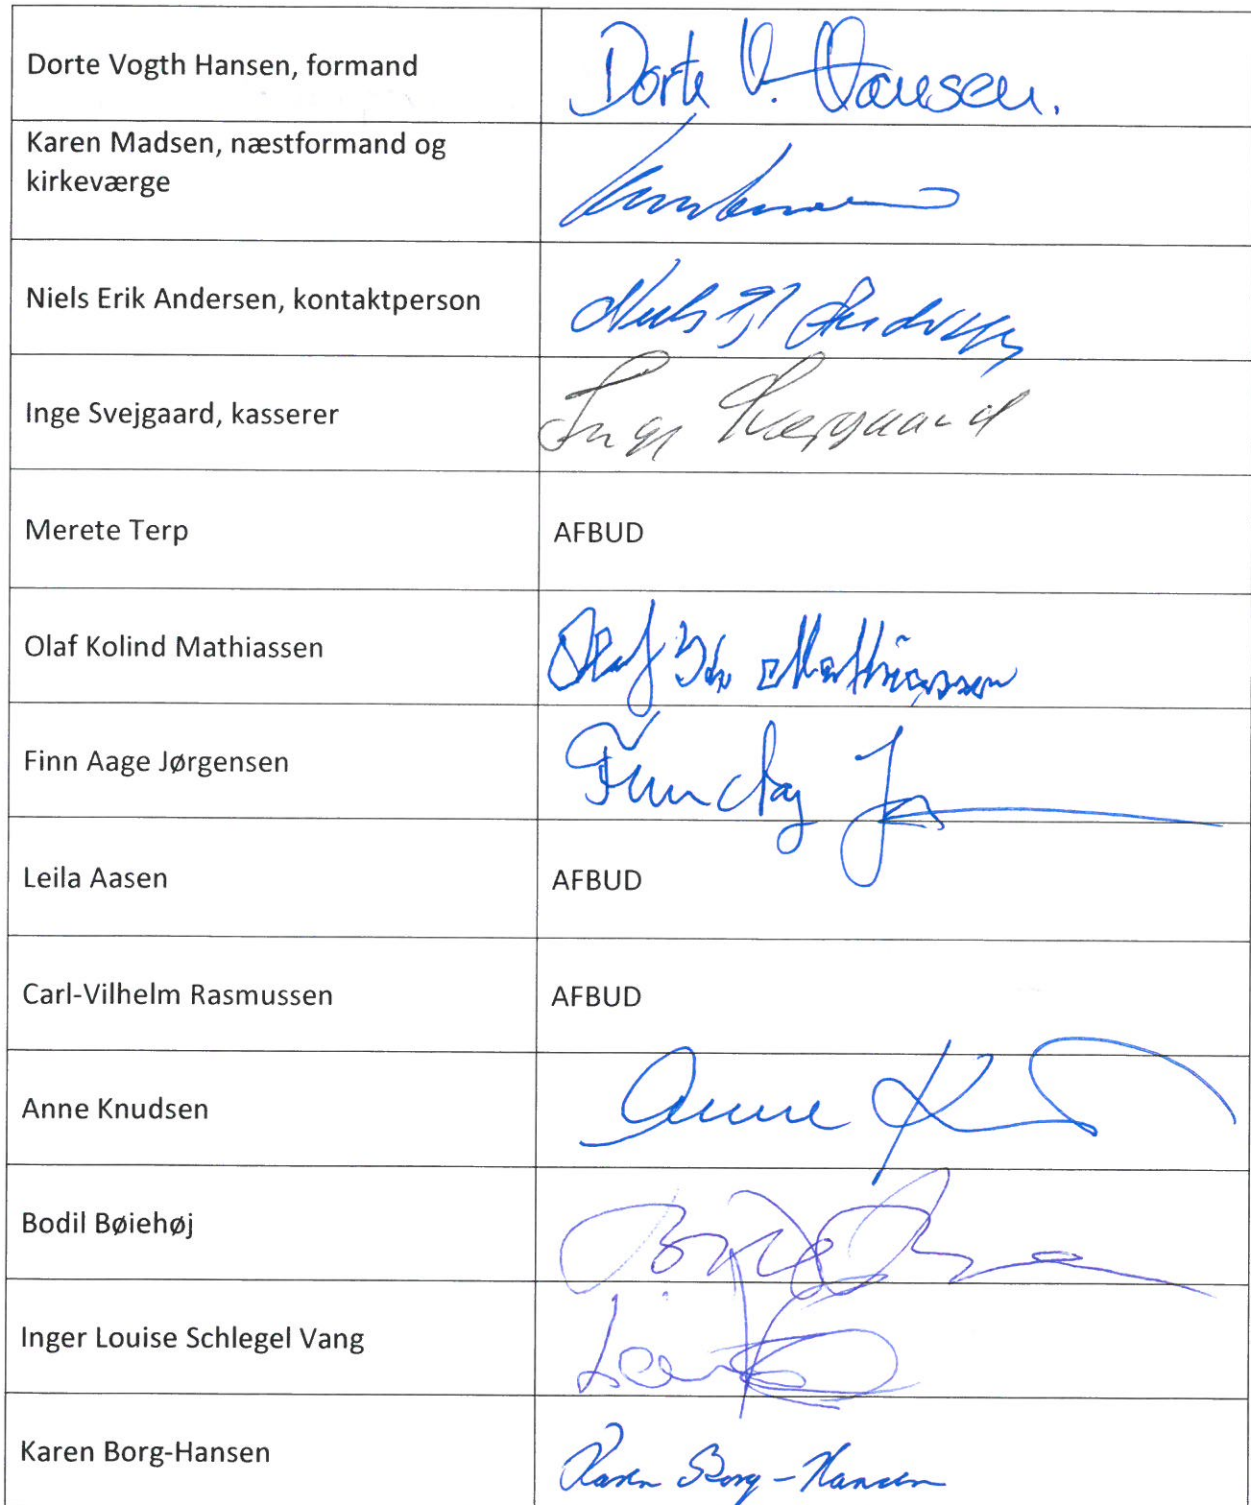 Dorte Vogth Hansen, formand
Dorte V. Hansen.
Karen Madsen, næstformand og
kirkeværge
Niels Erik Andersen, kontaktperson
Inge Svejgaard, kasserer
Inge Svejgaard
Merete Terp
AFBUD
Olaf Kolind Mathiassen
Olaf Mathiassen
Finn Aage Jørgensen
Finn
Leila Aasen
AFBUD
Carl-Vilhelm Rasmussen
AFBUD
Anne Knudsen
Anne
Bodil Bøiehøj
Inger Louise Schlegel Vang
Karen Borg-Hansen
Karen Borg-Hansen